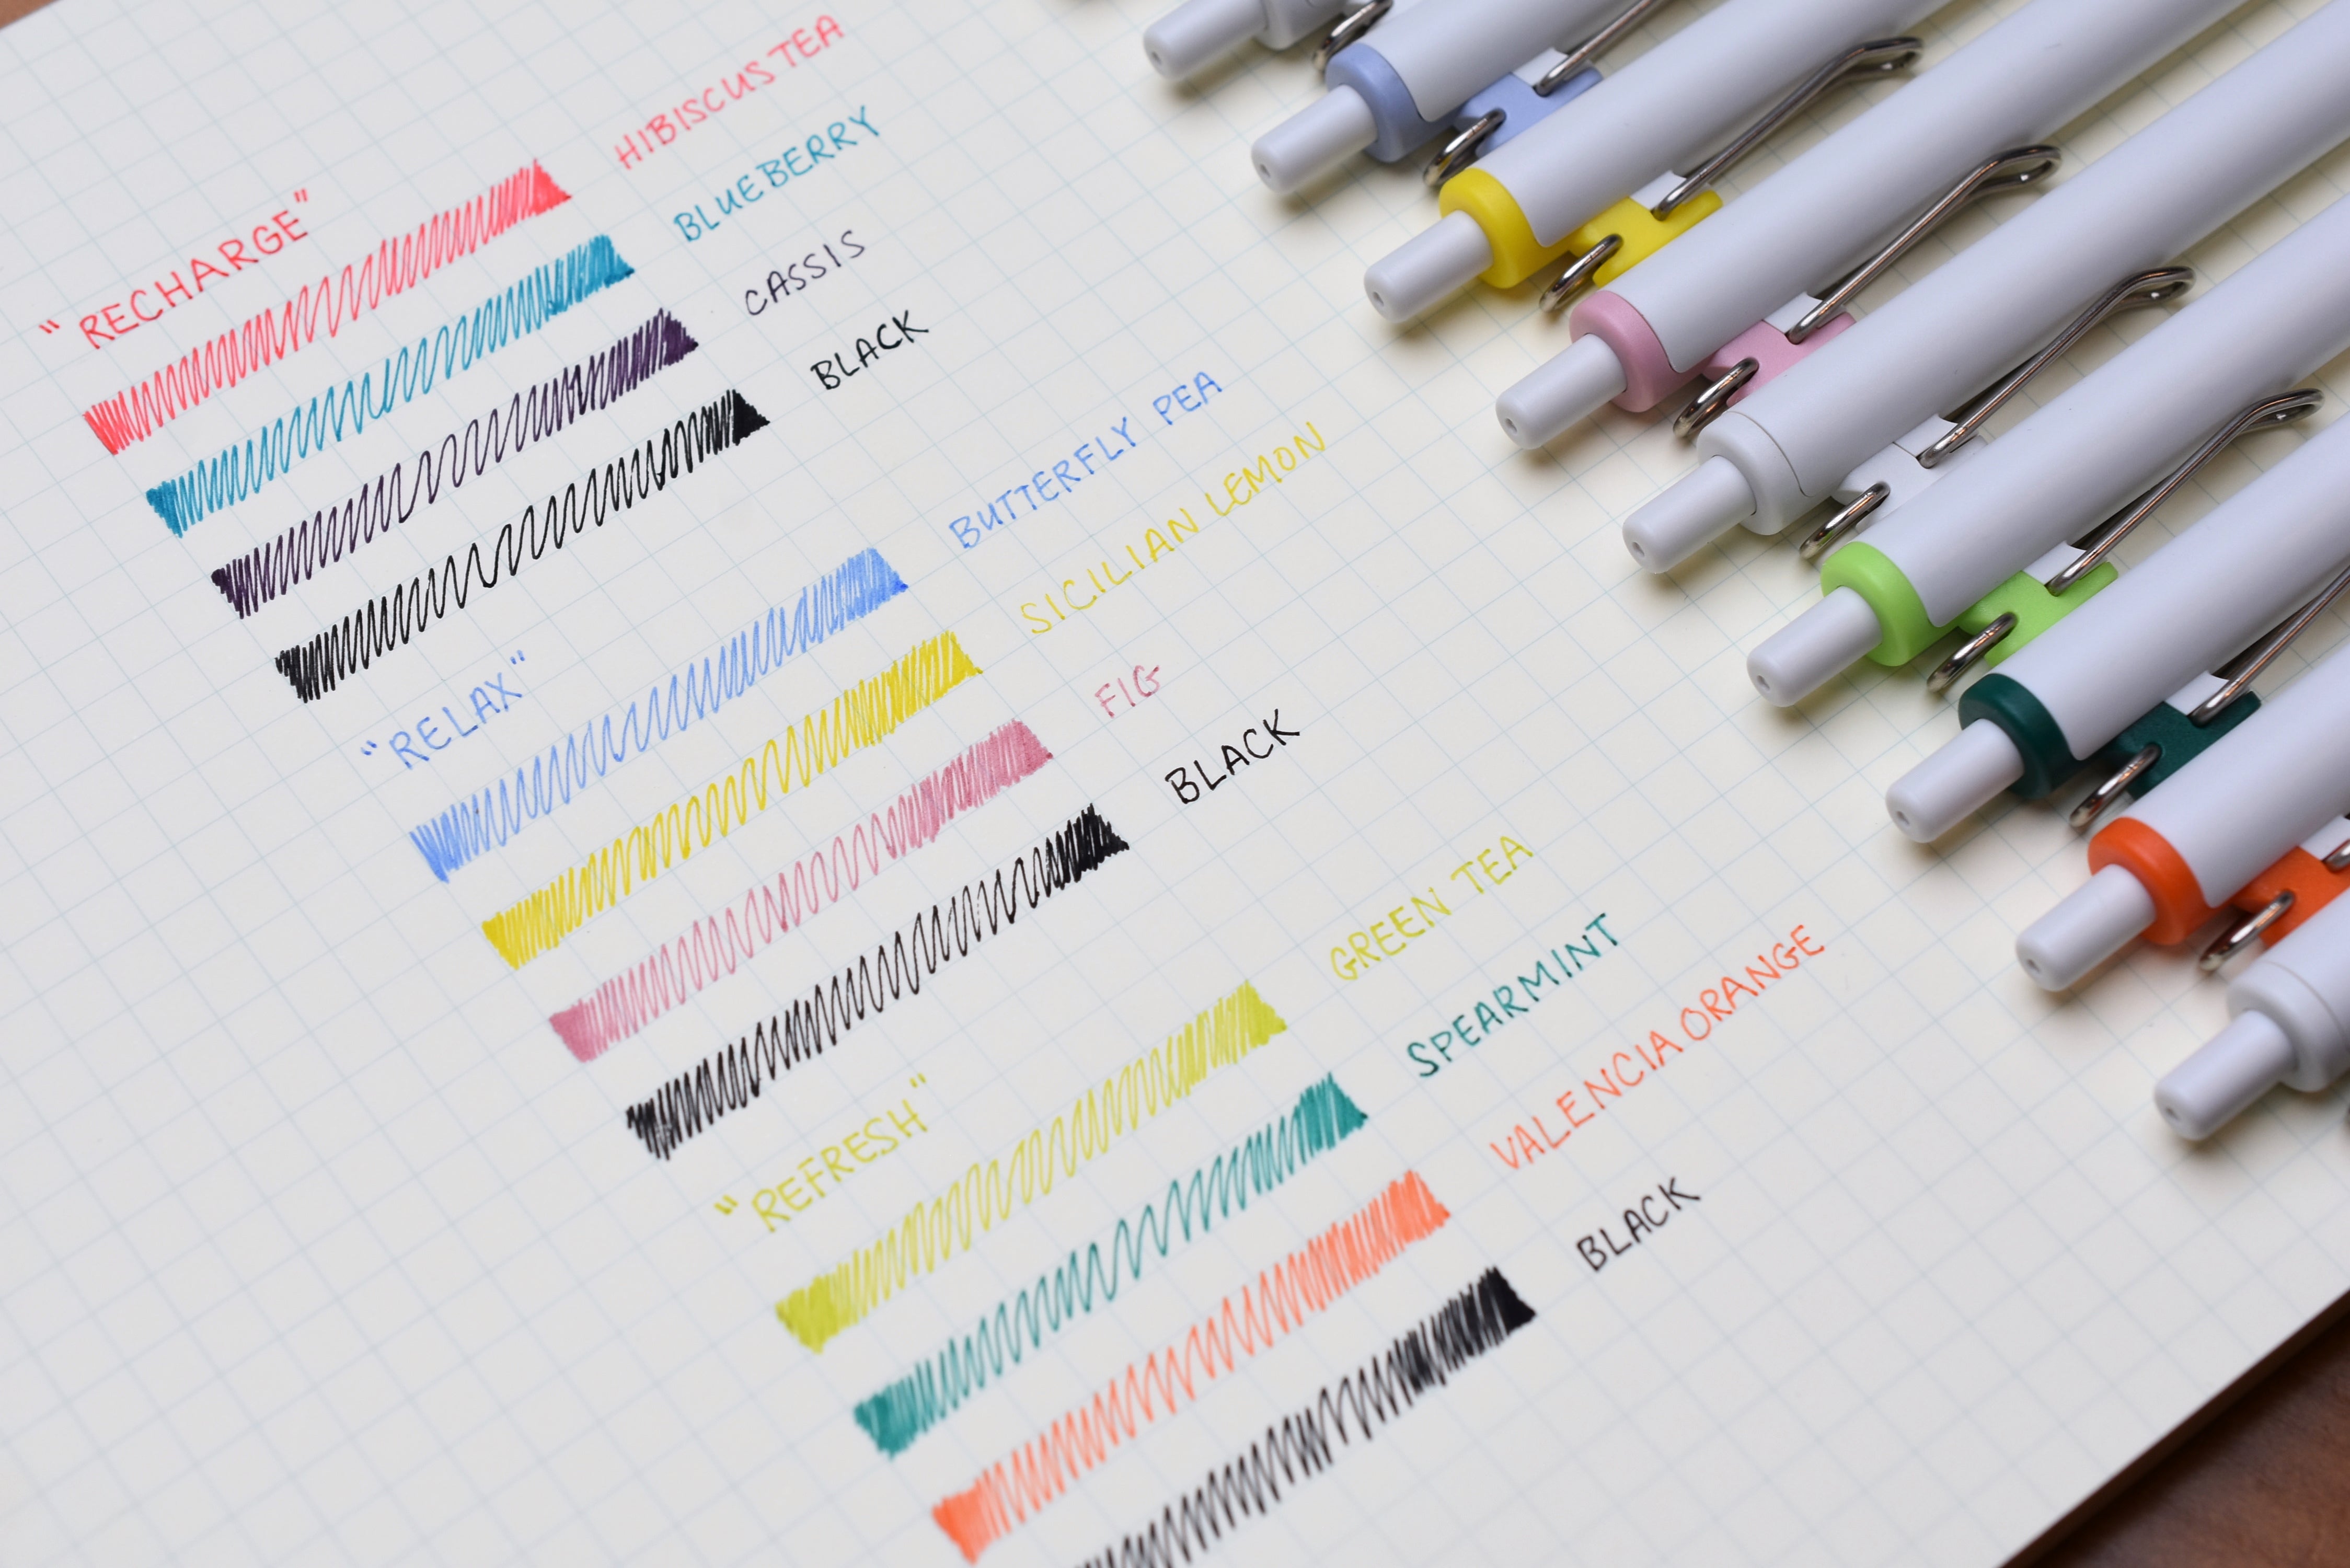 "RECHARGE"
HIBISCUS TEA
BLUEBERRY
CASSIS
BLACK
"RELAX"
BUTTERFLY PEA
SICILIAN LEMON
FIG
BLACK
"REFRESH"
GREEN TEA
SPEARMINT
VALENCIA ORANGE
BLACK